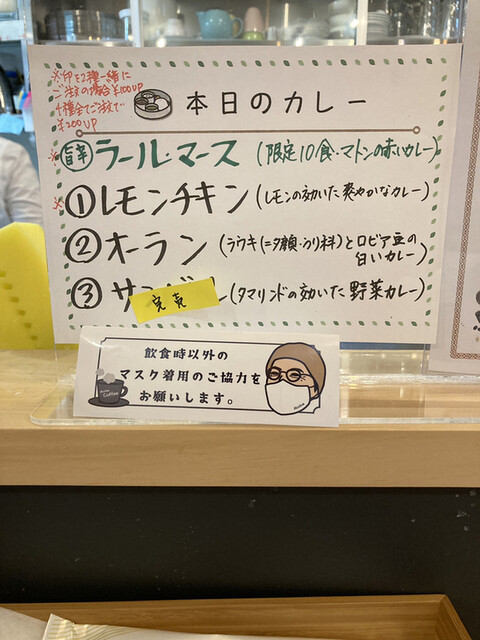 ※印を2種一緒に
ご注文の場合¥100UP
全種ご注文で
¥200UP
本日のカレー
※旨辛 ラール・マース (限定10食・マトンの赤いカレー)
※① レモンチキン (レモンの効いた爽やかなカレー)
② オーラン (ラウキ(=夕顔・うり科)とロビア豆の
白いカレー)
③ サ 完売 (タマリンドの効いた野菜カレー)
飲食時以外の
マスク着用のご協力を
お願いします。
Coffee